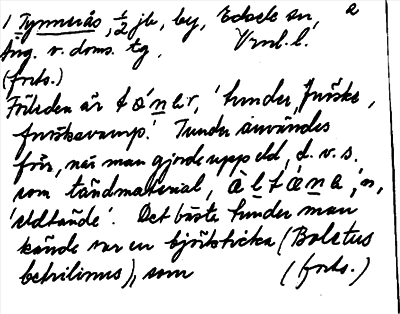 1 Tynnerås, 1/2 jb, by, Edsele sn, a
Ång. v. doms. tg, Vrnl. l.
(forts.)
Förleden är tọ́nḷer, 'tunder, fnöske,
fnösksvamp.' Tunder användes
förr, när man gjorde upp eld, d.v.s.
som tändmaterial, ò l t ǿ n a, n,
'eldtände'. Det bästa tunder man
kände var en björkticka (Boletus
betulinus), som (forts.)